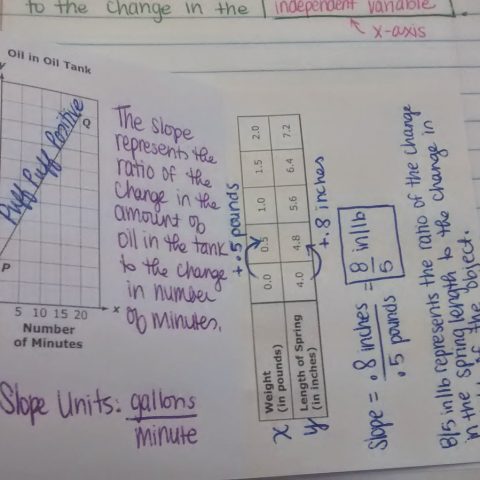 to the change in the independent variable.
x-axis
Oil in Oil Tank
y
Puff Puff Positive
Q
P
5 10 15 20
x
Number
of Minutes
The slope
represents the
ratio of the
change in the
amount of
oil in the tank
to the change
in number
of minutes.
Slope Units: gallons
minute
+.5 pounds
Weight
(in pounds) 0.0 0.5 1.0 1.5 2.0
Length of Spring
(in inches) 4.0 4.8 5.6 6.4 7.2
x
y
+.8 inches
Slope = .8 inches = 8 in/lb
.5 pounds 5
8/5 in/lb represents the ratio of the change
in the spring length to the change in
of the object.